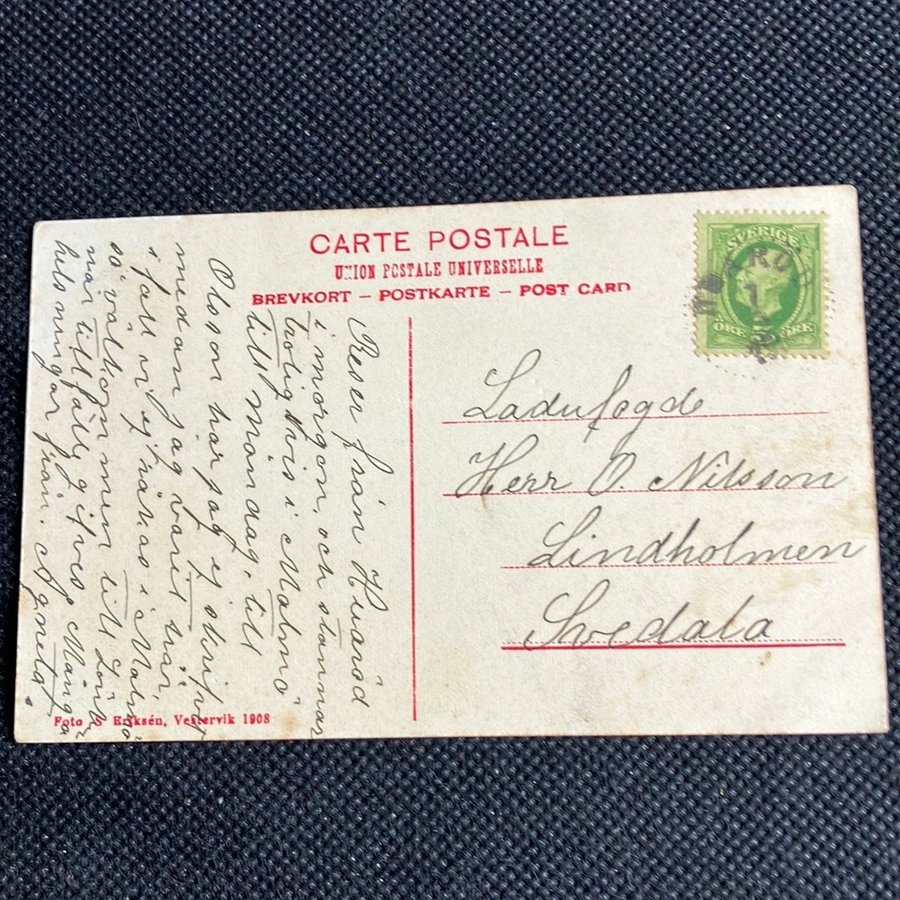 CARTE POSTALE
UNION POSTALE UNIVERSELLE
BREVKORT – POSTKARTE – POST CARD
SVERIGE
ÖRE ÖRE
Ladufogde
Herr O. Nilsson
Lindholmen
Svedala
Reser från Huaröd
i morgon, och stannar
trolig tvis i Malmö
till måndag. till
Olsson har jag ej skrifvit
medan jag varit här,
i fall vi ej råkas i Malmö
så välkommen till
när tillfälle gifves. Många
helsningar från. Agneta.
Foto S Eriksén, Vestervik 1908